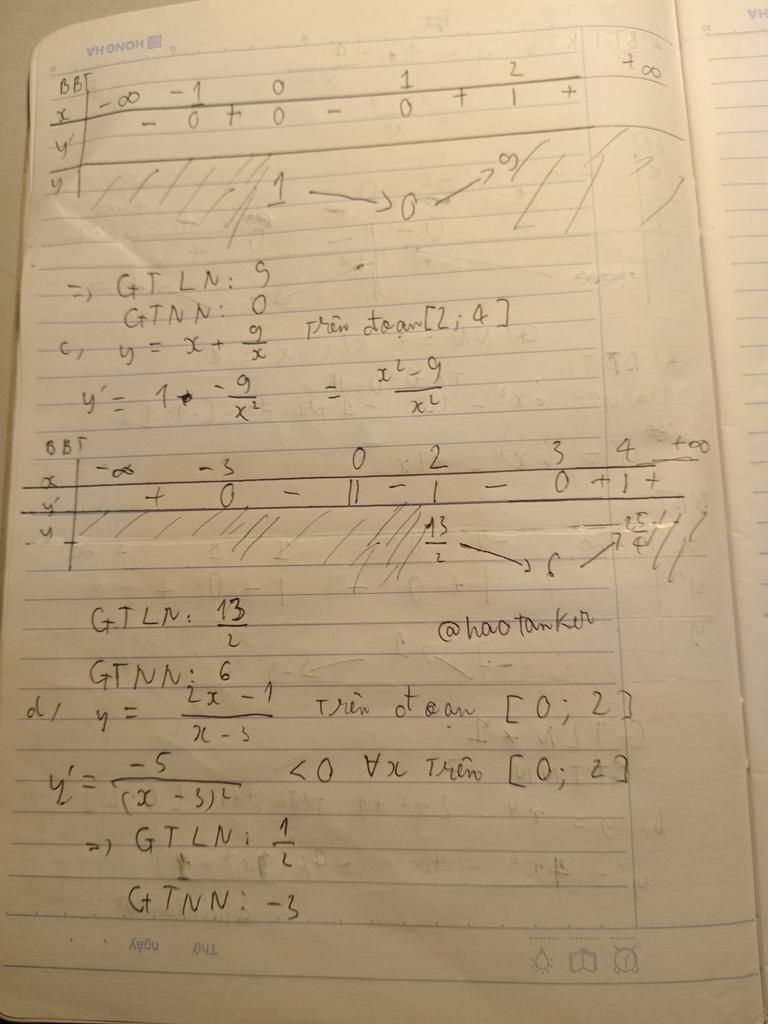 HONG HA
BBT
x -∞ -1 0 1 2 +∞
y' - 0 + 0 - 0 + | +
y 1 0 9
=> GTLN: 9
GTNN: 0
c, y = x + 9/x Trên đoạn [2; 4]
y' = 1 - 9/x² = x² - 9/x²
BBT
x -∞ -3 0 2 3 4 +∞
y' + 0 - || - | - 0 + | +
y 13/2 6 25/4
GTLN: 13/2
@haotanker
GTNN: 6
d, y = 2x - 1/x - 3 Trên đoạn [0; 2]
y' = -5/(x - 3)² < 0 ∀x Trên [0; 2]
=> GTLN: 1/2
GTNN: -3
Thứ ngày